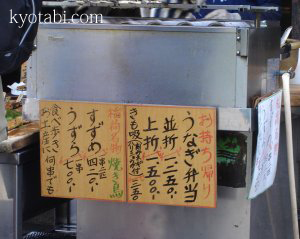 kyotabi.com
お持ち帰り
うなぎ弁当
並折一二五〇・
上折一五〇〇・
きも吸 二五〇
稲荷名物 焼き鳥
すずめ 四二〇・
うずら 七〇〇・
一串
食べ歩き、
お土産に何串でも